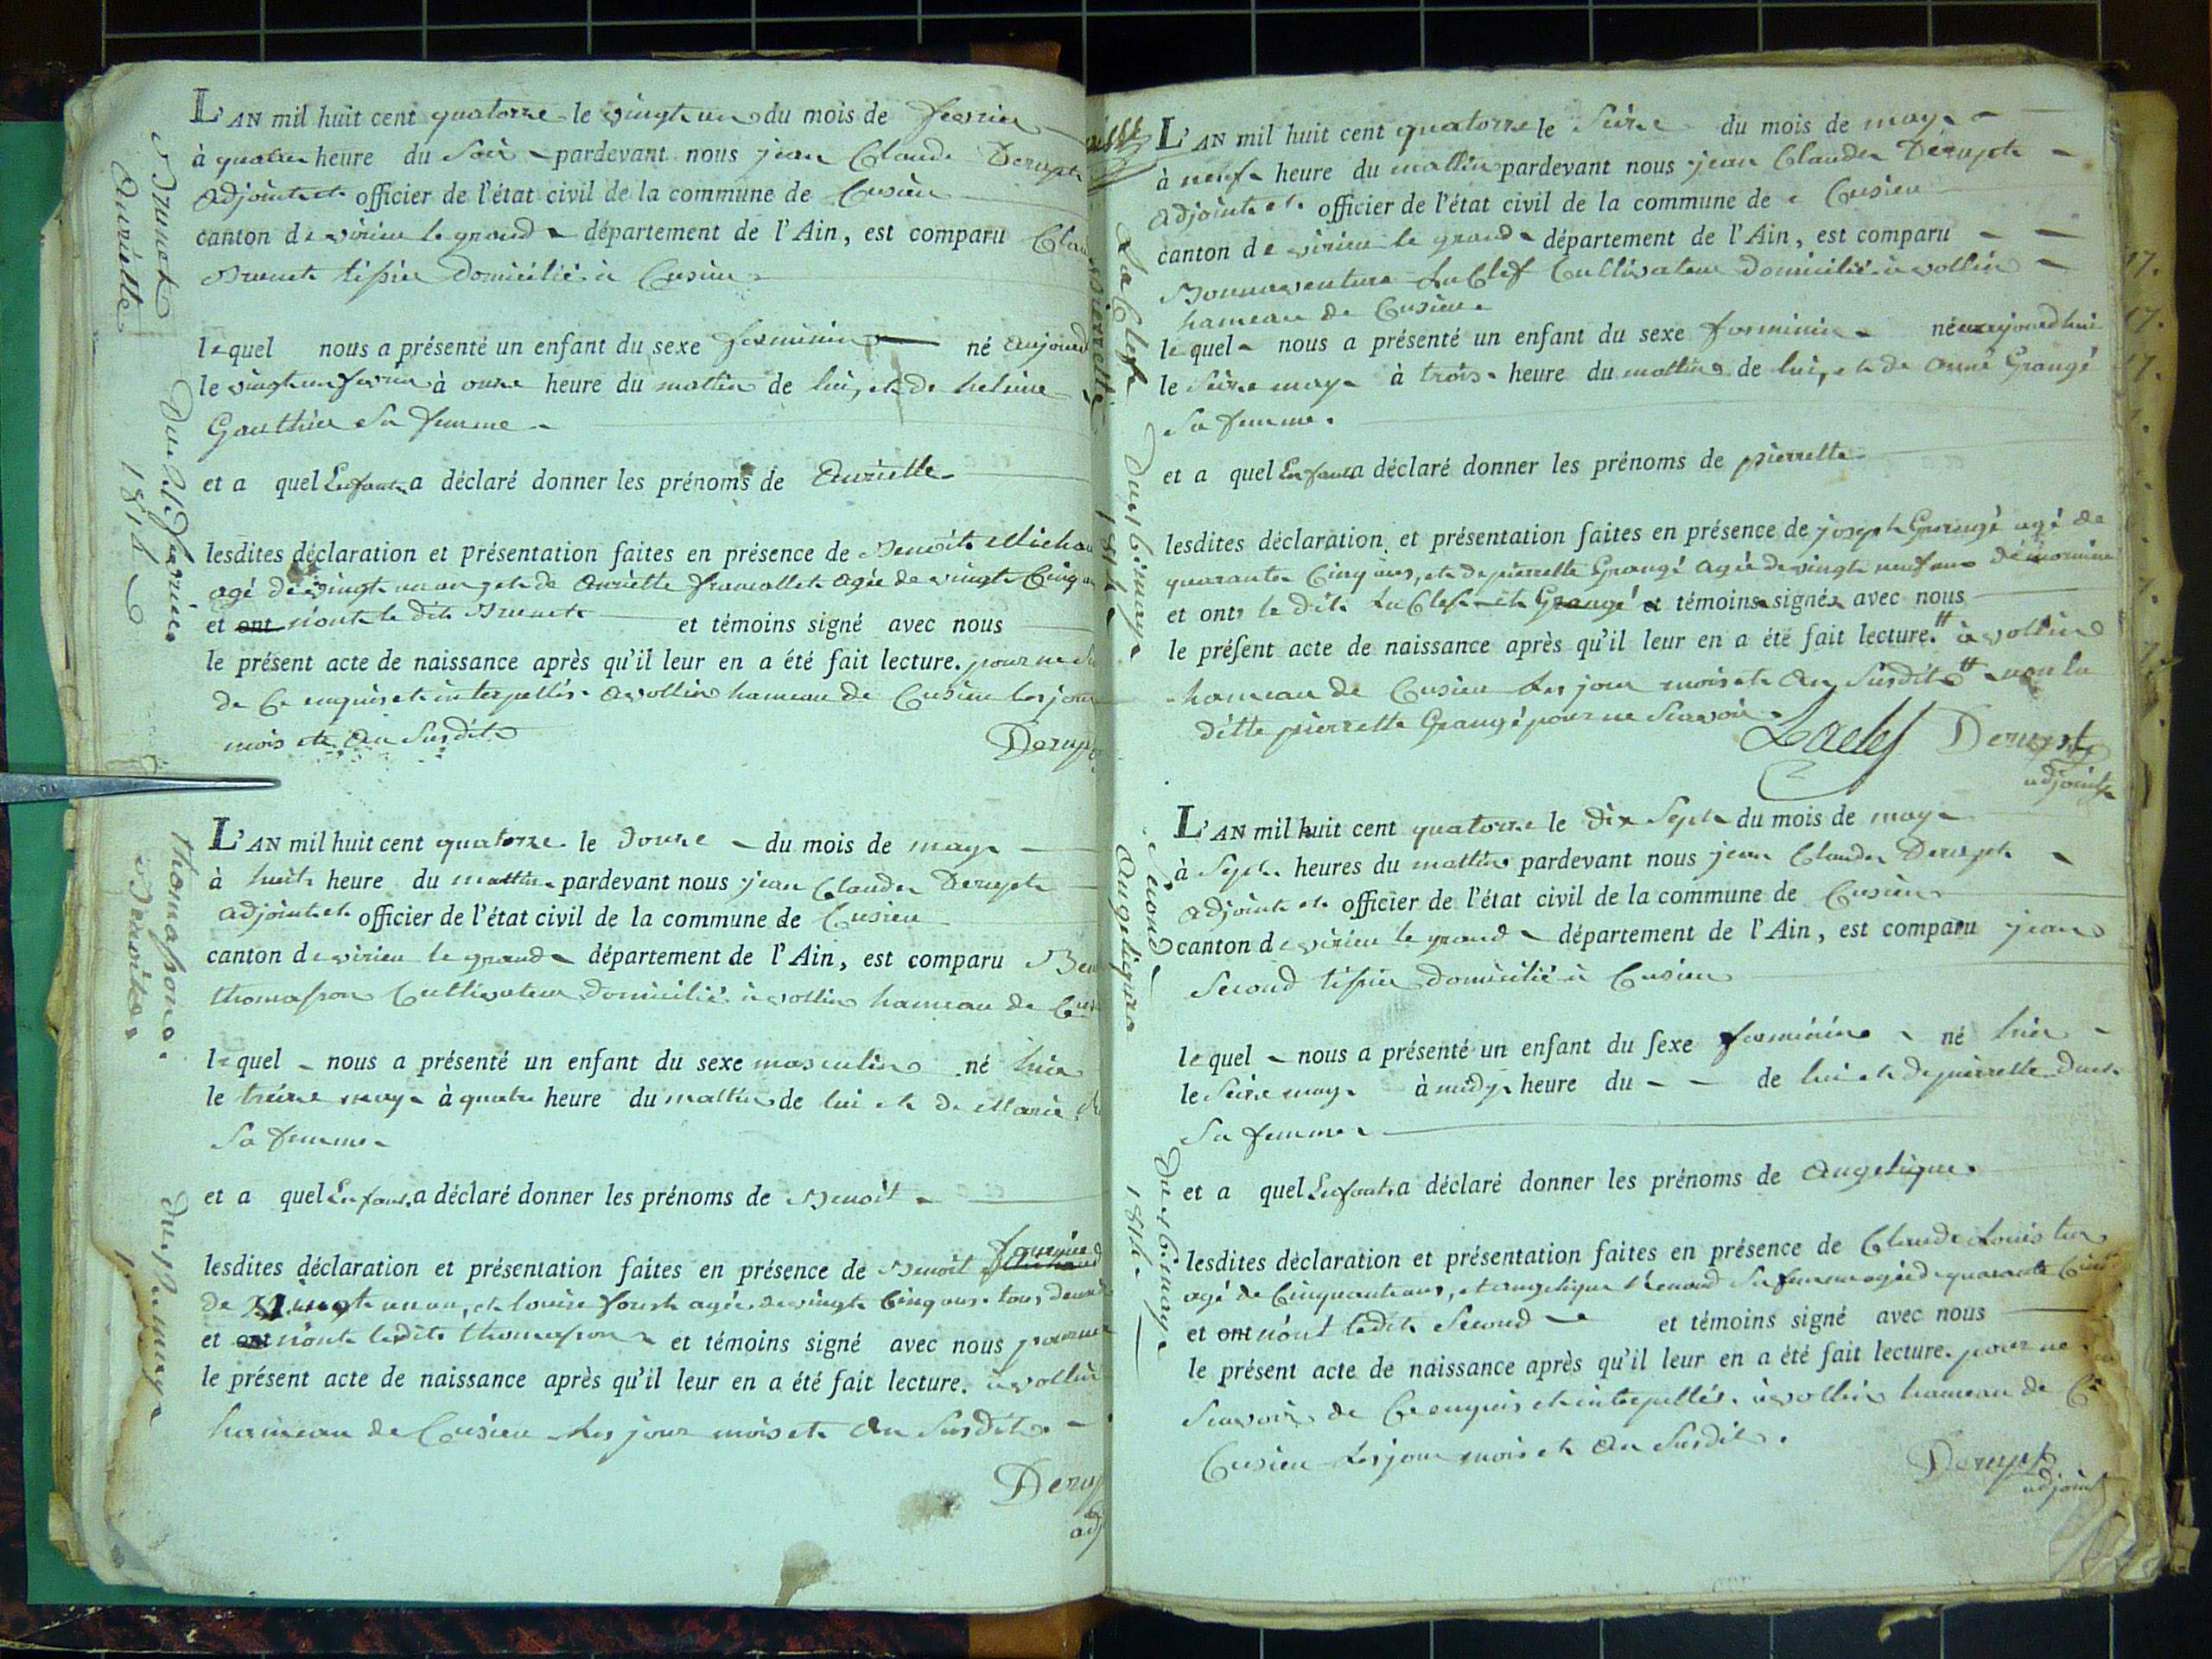 L'AN mil huit cent quatorze le vingt un du mois de fevrier
à quatre heure du Soir pardevant nous jean Claude Derupt
adjoint et officier de l'état civil de la commune de Cusieu
canton de virieu le grand département de l'Ain, est comparu
Brunet tissier domicilié à Cusieu
lequel nous a présenté un enfant du sexe feminin né aujourd
le vingt un fevrier à onze heure du mattin de lui, et de heleine
Gauthier Sa femme
et a quel Enfant a déclaré donner les prénoms de Anriette
lesdites déclaration et présentation faites en présence de Benoit Michau
agé de vingt un an et de Anriette francollet agée de vingt Cinq
et ont n'ont le dit Brunet et témoins signé avec nous
le présent acte de naissance après qu'il leur en a été fait lecture. pour ne
de Ce enquis et interpellés. a vollien hameau de Cusieu les jour
mois et an Susdit
Derupt
Brunet
Anriette
Du 21 fevrier
1814
L'AN mil huit cent quatorze le douze du mois de may
à huit heure du mattin pardevant nous jean Claude Derupt
adjoint et officier de l'état civil de la commune de Cusieu
canton de virieu le grand département de l'Ain, est comparu
thomasson Cultivateur domicilié à vollien hameau de
lequel nous a présenté un enfant du sexe masculin né hier
le treize may à quatre heure du mattin de lui et de Marie
Sa femme
et a quel Enfant a déclaré donner les prénoms de Benoit
lesdites déclaration et présentation faites en présence de Benoit
de vingt un an, et louise agée de vingt Cinq ans. tous deux
et ont n'ont ledit thomasson et témoins signé avec nous pour ne
le présent acte de naissance après qu'il leur en a été fait lecture. à vollien
hameau de Cusieu les jour mois et an Susdit.
Derup
adj
thomasson.
Benoit
may
L'AN mil huit cent quatorze le Seize du mois de may
à neuf heure du mattin pardevant nous jean Claude Derupt
adjoint et officier de l'état civil de la commune de Cusieu
canton de virieu le grand département de l'Ain, est comparu
Bonnaventure LaClef Cultivateur domicilié à vollien
hameau de Cusieu
lequel nous a présenté un enfant du sexe feminin né aujourdhui
le Seize may à trois heure du mattin de lui, et de Anne Grangé
Sa femme.
et a quel Enfant a déclaré donner les prénoms de pierrette
lesdites déclaration et présentation faites en présence de joseph Grangé agé de
quarante Cinq ans, et de pierrette Grangé agée de vingt neuf ans
et ont le dit LaClef et Grangé et témoins signés avec nous
le présent acte de naissance après qu'il leur en a été fait lecture. à vollien
hameau de Cusieu les jour mois et an Susdit non la
ditte pierrette Grangé pour ne Scavoir
Laclef Derupt
adjoint
La Clef
pierrette
Du 16 may
1814
L'AN mil huit cent quatorze le dix Sept du mois de may
à Sept heures du mattin pardevant nous jean Claude Derupt
adjoint et officier de l'état civil de la commune de Cusieu
canton de virieu le grand département de l'Ain, est comparu jean
Second tissier domicilié à Cusieu
lequel nous a présenté un enfant du sexe feminin né hier
le Seize may à midy heure du de lui et de pierrette
Sa femme
et a quel Enfant a déclaré donner les prénoms de Angelique.
lesdites déclaration et présentation faites en présence de Claude Louis
agé de Cinquante ans, et angelique Renaud Sa femme agée de quarante
et ont n'ont ledit Second et témoins signé avec nous
le présent acte de naissance après qu'il leur en a été fait lecture. pour ne
Scavoir de Ce enquis et interpellés. à vollien hameau de
Cusieu les jour mois et an Susdit.
Derupt
adjoint
Second
Angelique
Du 16 may
1814